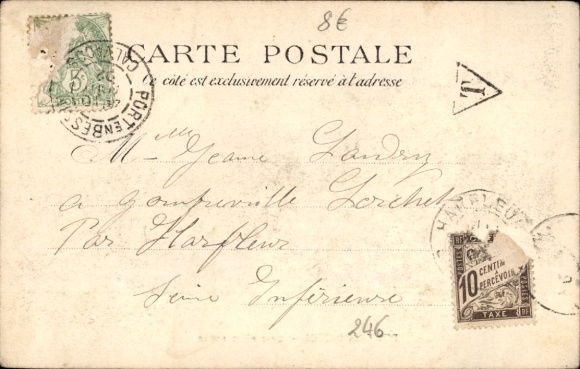 8€
CARTE POSTALE
Ce côté est exclusivement réservé à l'adresse
T
5c
CALVADOS
PORTENBESSIN
Mlle Jeanne Landry
a Gonfreville Lorchet
Par Harfleur
Seine Inférieure
HARFLEUR
10
CENTIMES
PERCEVOIR
POSTES
TAXE
RF
246